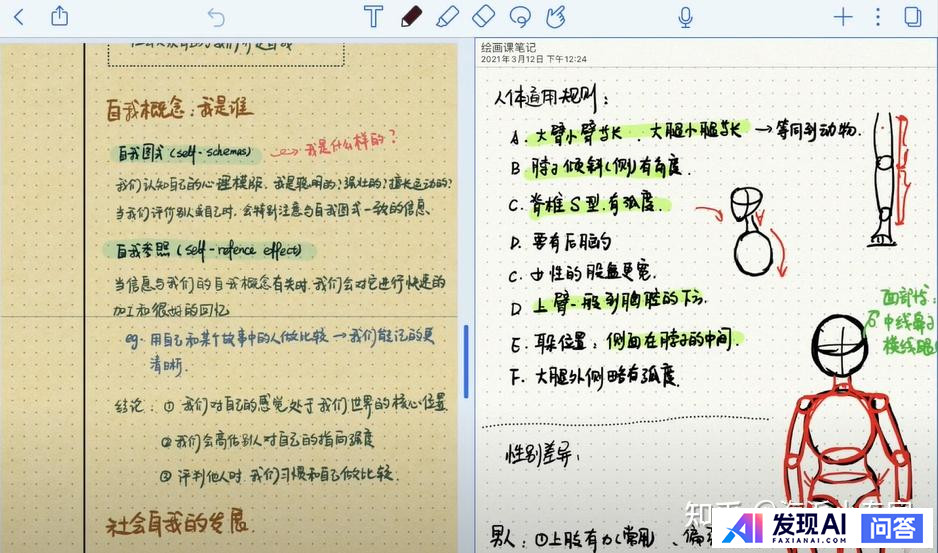 自我概念：我是谁
自我图式（self-schemas）
我是什么样的？
我们认知自己的心理模版，我是聪明的？强壮的？擅长运动的？
当我们评价别人或自己时，会特别注意与自我图式一致的信息、
自我参照（self-refence effect）
当信息与我们的自我概念有关时，我们会对它进行快速的
加工和很好的回忆
eg. 用自己和某个故事中的人做比较 → 我们能记的更
清晰.
结论：① 我们对自己的感觉处于我们世界的核心位置
②我们会高估别人对自己的指向强度
③ 评判他人时，我们习惯和自己做比较.
社会自我的发展.
绘画课笔记
2021年3月12日 下午12:24
人体通用规则：
A. 大臂小臂等长、大腿小腿等长 → 等同到动物.
B 脖子倾斜（侧）有角度.
C. 脊椎S型，有弧度.
D. 要有后脑的
C. 女性的股盆更宽.
D 上臂一般到胸腔的下方.
E. 耳朵位置：侧面在脖子的中间.
F. 大腿外侧略有弧度.
面部
中线鼻子
横线眼
性别差异：
男人：①上肢有力（常用）、偏
知乎
发现AI 问答
FAXIANAI.COM